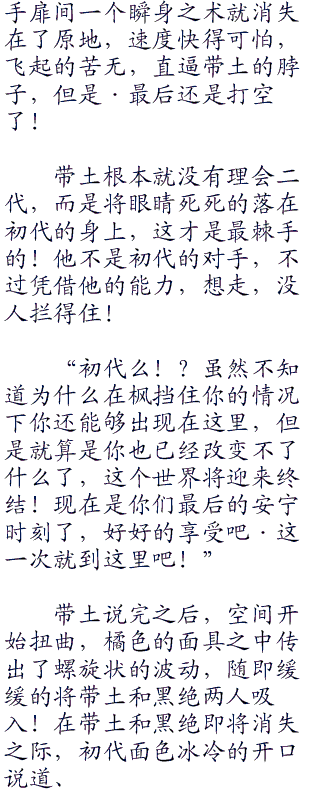 手扉间一个瞬身之术就消失
在了原地，速度快得可怕，
飞起的苦无，直逼带土的脖
子，但是·最后还是打空
了！
带土根本就没有理会二
代，而是将眼睛死死的落在
初代的身上，这才是最棘手
的！他不是初代的对手，不
过凭借他的能力，想走，没
人拦得住！
“初代么！？虽然不知
道为什么在枫挡住你的情况
下你还能够出现在这里，但
是就算是你也已经改变不了
什么了，这个世界将迎来终
结！现在是你们最后的安宁
时刻了，好好的享受吧·这
一次就到这里吧！”
带土说完之后，空间开
始扭曲，橘色的面具之中传
出了螺旋状的波动，随即缓
缓的将带土和黑绝两人吸
入！在带土和黑绝即将消失
之际，初代面色冰冷的开口
说道、